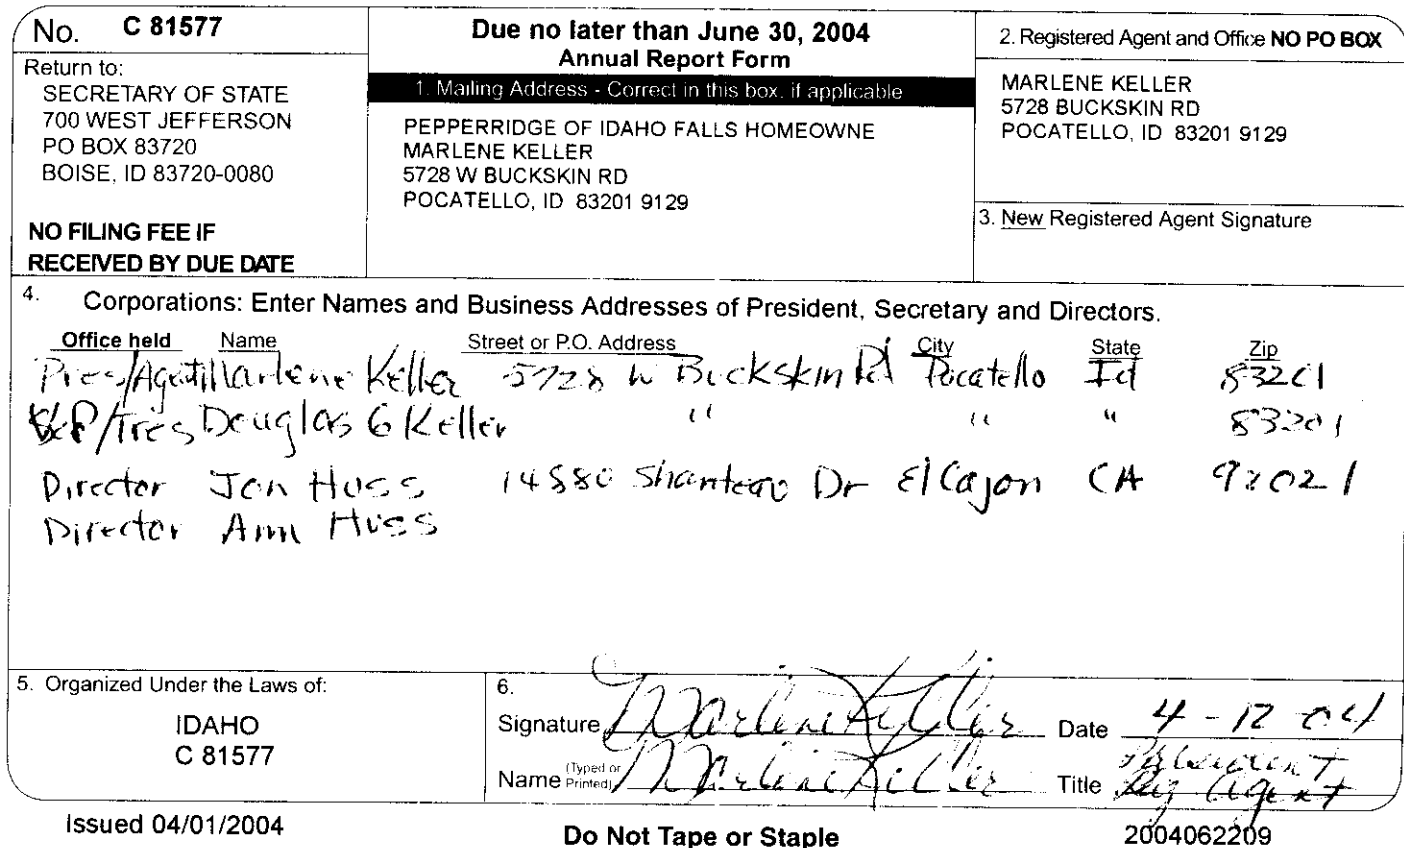 No. C 81577
Return to:
SECRETARY OF STATE
700 WEST JEFFERSON
PO BOX 83720
BOISE, ID 83720-0080
NO FILING FEE IF
RECEIVED BY DUE DATE
Due no later than June 30, 2004
Annual Report Form
1. Mailing Address - Correct in this box, if applicable
PEPPERRIDGE OF IDAHO FALLS HOMEOWNE
MARLENE KELLER
5728 W BUCKSKIN RD
POCATELLO, ID 83201 9129
2. Registered Agent and Office NO PO BOX
MARLENE KELLER
5728 BUCKSKIN RD
POCATELLO, ID 83201 9129
3. New Registered Agent Signature
4. Corporations: Enter Names and Business Addresses of President, Secretary and Directors.
Office held Name Street or P.O. Address City State Zip
Pres/Agent Marlene Keller 5728 W Buckskin Rd Pocatello Id 83201
/Tres Douglas G Keller " " " 83201
Director Jon Huss 14880 Dr El Cajon CA 92021
Director Ann Huss
5. Organized Under the Laws of:
IDAHO
C 81577
6.
Signature Marlene Keller Date 4-12-04
Name (Typed or Printed) Marlene Keller Title President
Reg Agent
Issued 04/01/2004 Do Not Tape or Staple 2004062209